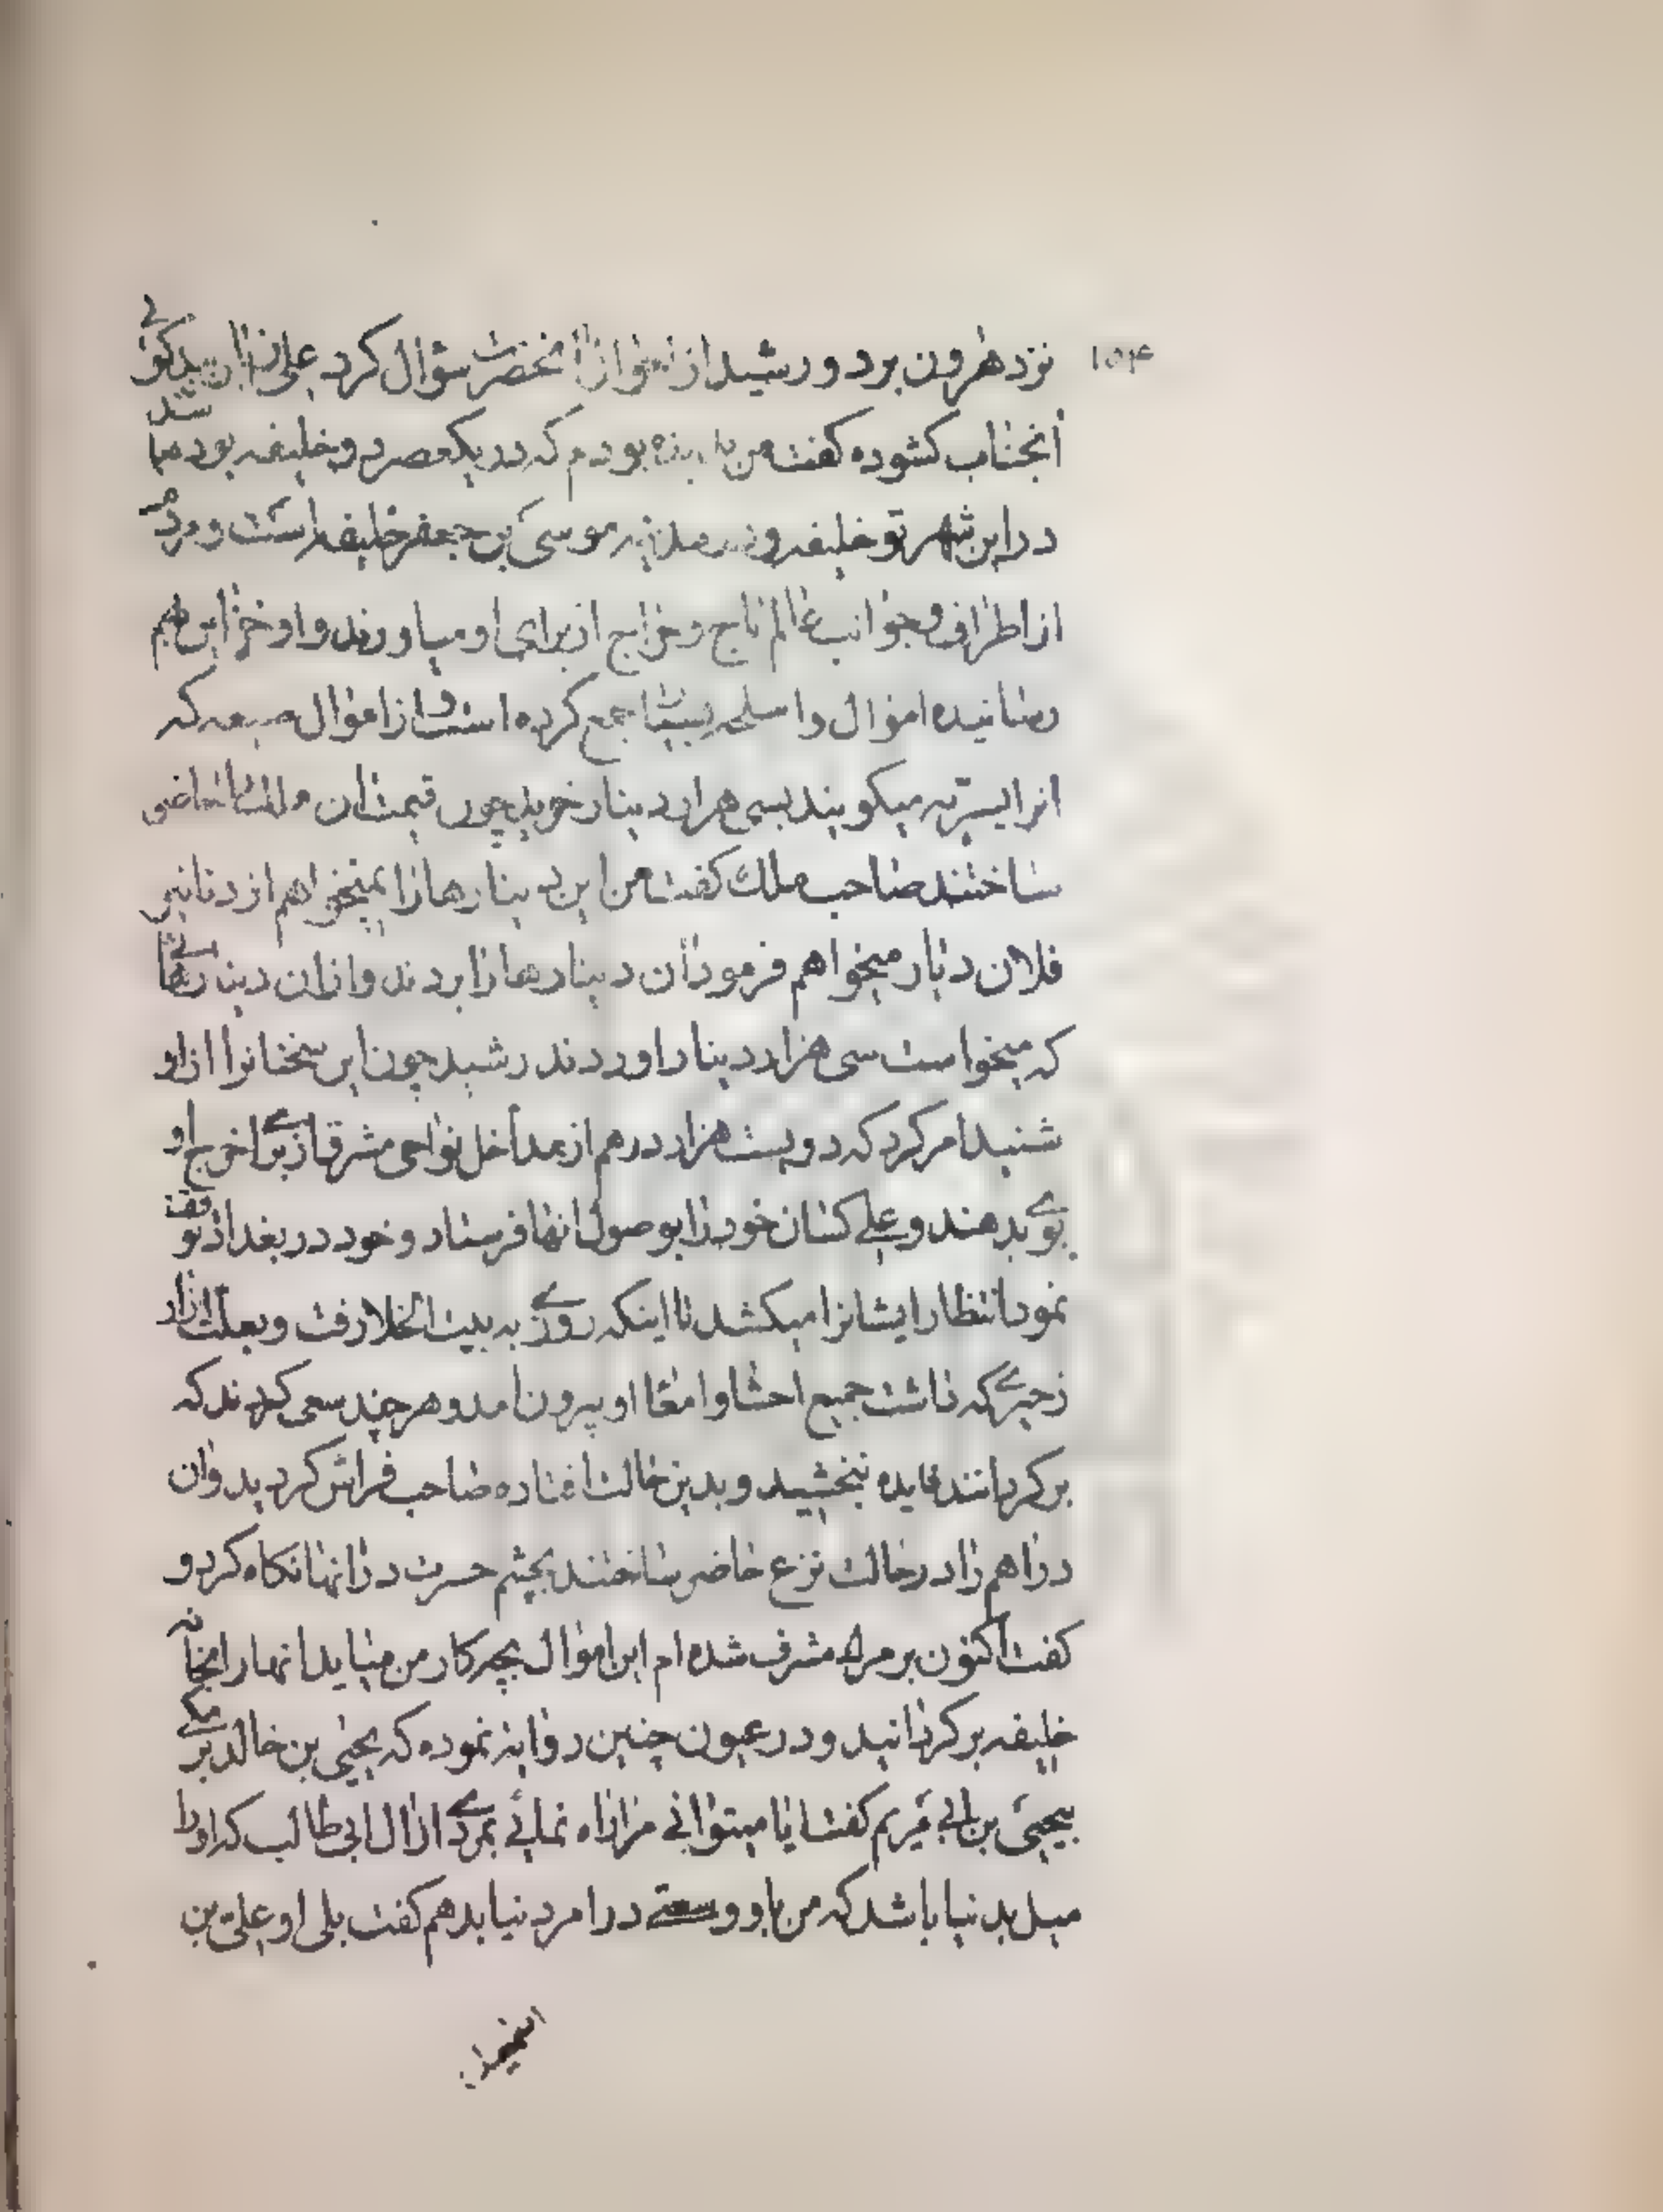 ۱۵۴
نزد هرون برد و رشید از احوال آنحضرت سؤال کرد علی زبان ببدکوئی
آنجناب کشوده کفت من نبوده بودم که در یکعصر دو خلیفه بود مبا شد
در این شهر تو خلیفه و در مدینه موسی بن جعفر خلیفه است و مردم
از اطراف و جوانب عالم باج و خراج از برای او میاورند و او خزاین بهم
رسانیده اموال و اسلحه بسیار جمع کرده است و از اموال ضیعه که
انرا یسیریه میکویند بسی هزار دینار خرید چون قیمت ان حاضر
ساختند صاحب ملک کفت من این دینارها را نمیخواهم از دنانیر
فلان دیار میخواهم فرمود آن دینارها را بردند و از ان دینارهائی
که میخواست سی هزار دینار اوردند رشید چون این سخنانرا از او
شنید امر کرد که دویست هزار درهم از مداخل نواحی مشرق از برای اخراج او
بوی بدهند و علی کسان خود را بوصول انها فرستاد و خود در بغداد توقف
نمود انتظار ایشانرا میکشید تا اینکه روزی به بیت الخلا رفت و بعلت ازار
زحیری که داشت جمیع احشا و امعا او بیرون امد و هر چند سعی کردند که
برکردانند فایده نبخشید و بدین حالت افتاده صاحب فراش کرد ید و ان
دراهم را در حالت نزع حاضر ساختند بچشم حسرت در انها نکاه کرد و
کفت اکنون بر مرک مشرف شده ام این اموال بچه کار من میاید انها را بخانه
خلیفه برکردانید و در عیون چنین روایة نموده که یحیی بن خالد برمکی
بیحیی بن ابی مریم کفت ایا میتوانی مرا راه نمائی بمردی از ال ابی طالب که او را
میل بدنیا باشد که من باو وسعتی در امر دنیا بدهم کفت بلی او علی بن